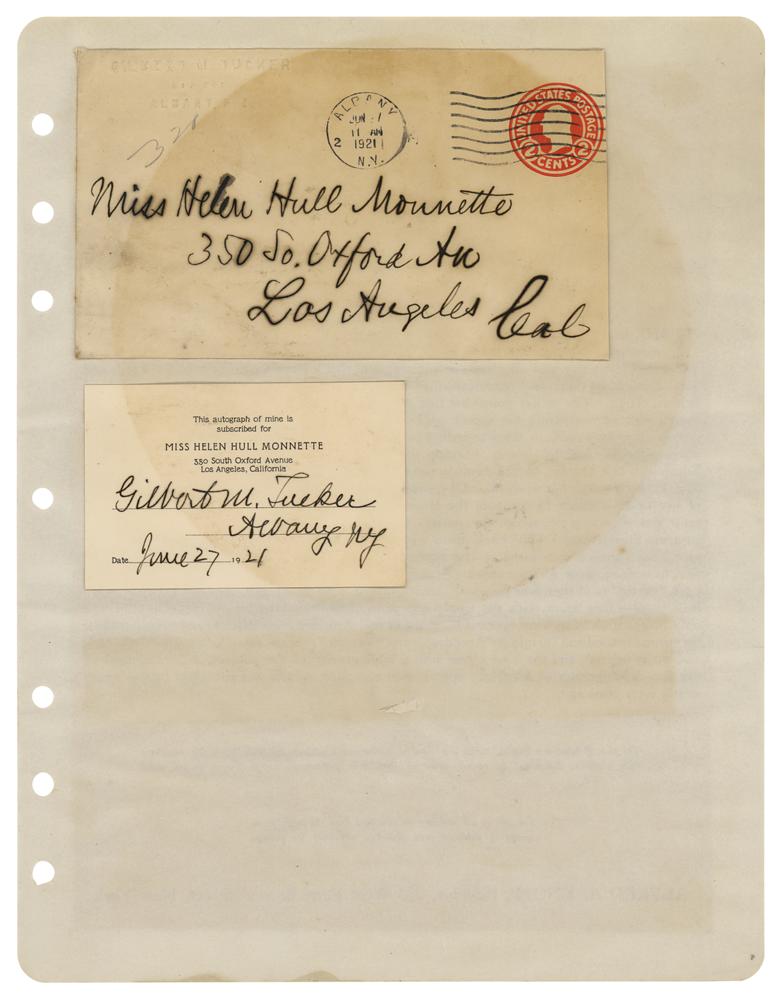 GILBERT M. TUCKER
ALBANY, N.Y.
328
ALBANY
JUN 27
11 AM
2 1921
N.Y.
UNITED STATES POSTAGE
2 CENTS 2
Miss Helen Hull Monnette
350 So. Oxford Av
Los Angeles Cal
This autograph of mine is
subscribed for
MISS HELEN HULL MONNETTE
350 South Oxford Avenue
Los Angeles, California
Gilbert M. Tucker
Albany NY
Date June 27 1921